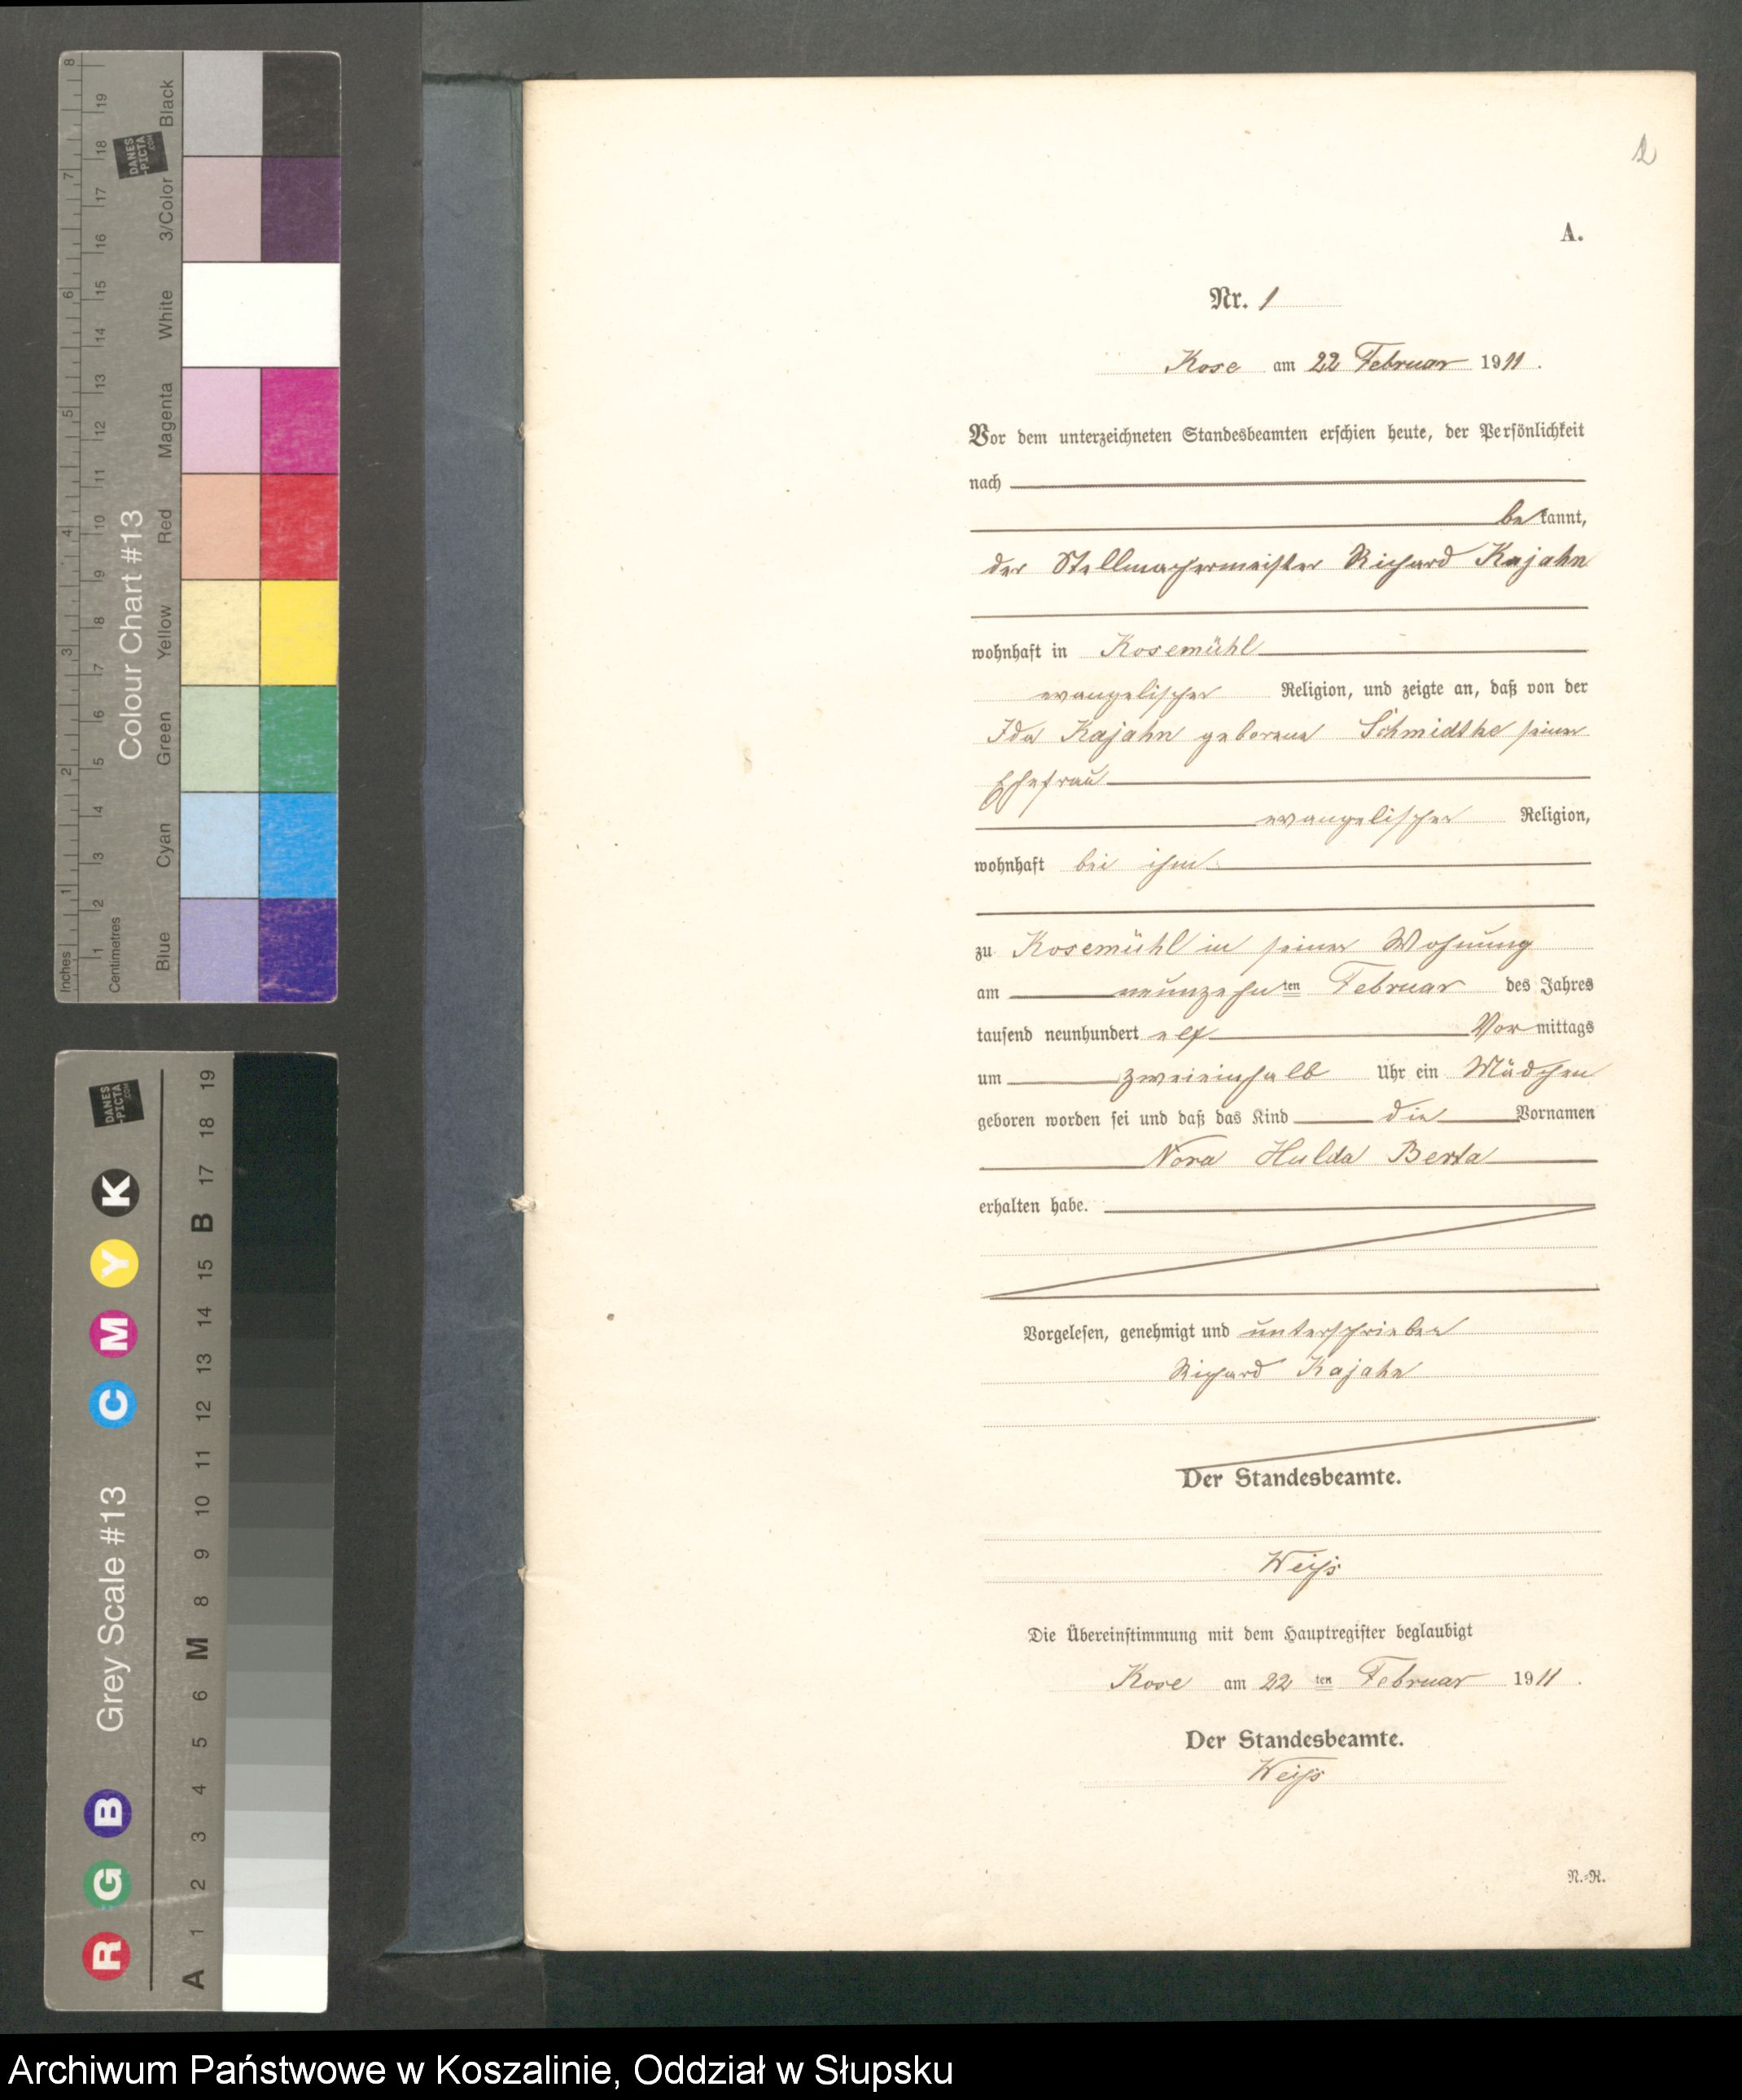 2
A.
Nr. 1
Kose am 22 Februar 1911.
Vor dem unterzeichneten Standesbeamten erschien heute, der Persönlichkeit
nach
bekannt,
der Stellmachermeister Richard Kajahn
wohnhaft in Kosemühl
evangelischer Religion, und zeigte an, daß von der
Ida Kajahn geborene Schmidtke seiner
Ehefrau
evangelischer Religion,
wohnhaft bei ihm
zu Kosemühl in seiner Wohnung
am neunzehnten Februar des Jahres
tausend neunhundert elf Vormittags
um zweieinhalb Uhr ein Mädchen
geboren worden sei und daß das Kind die Vornamen
Nora Hulda Berta
erhalten habe.
Vorgelesen, genehmigt und unterschrieben
Richard Kajahn
Der Standesbeamte.
Weiß
Die Übereinstimmung mit dem Hauptregister beglaubigt
Kose am 22 ten Februar 1911.
Der Standesbeamte.
Weiß
N.-R.
Colour Chart #13
Inches 1 2 3 4 5 6 7 8
Centimetres 1 2 3 4 5 6 7 8 9 10 11 12 13 14 15 16 17 18 19
Blue Cyan Green Yellow Red Magenta White 3/Color Black
DANES
-PICTA
.COM
Grey Scale #13
R G B C M Y K
A 1 2 3 4 5 6 M 8 9 10 11 12 13 14 15 B 17 18 19
DANES
-PICTA
.COM
Archiwum Państwowe w Koszalinie, Oddział w Słupsku